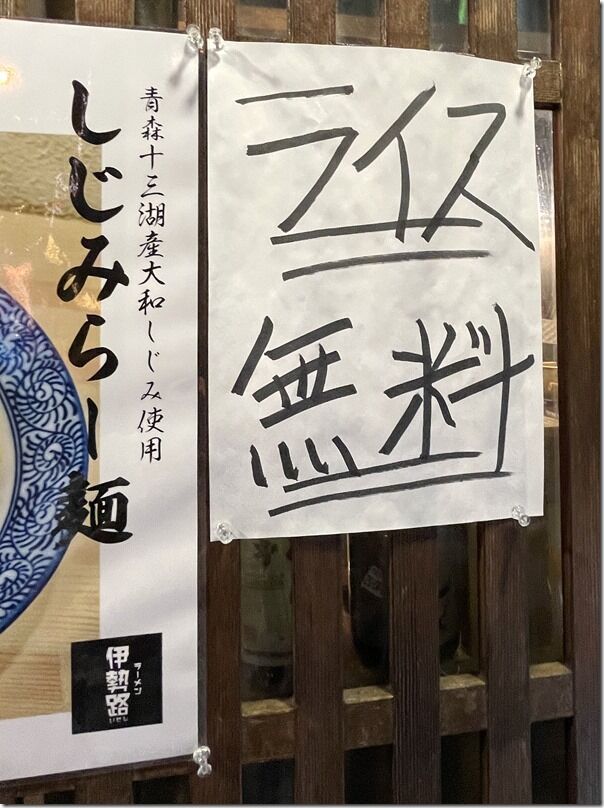 ライス
無料
青森十三湖産大和しじみ使用
しじみらー麺
ラーメン
伊勢路
いせじ